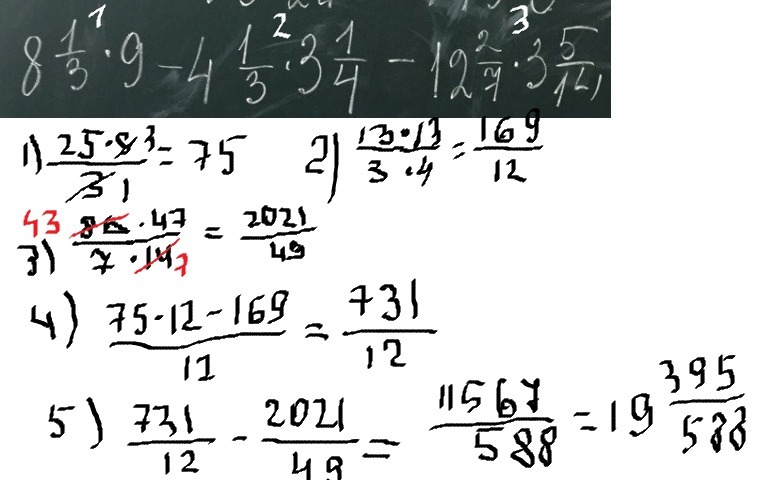 1 2 3
8 1/3 · 9 - 4 1/3 · 3 1/4 - 12 2/7 · 3 5/14
1) 25·9 3/3 1 = 75 2) 13·13/3·4 = 169/12
3) 43 86·47/7·14 7 = 2021/49
4) 75·12-169/12 = 731/12
5) 731/12 - 2021/49 = 11567/588 = 19 395/588